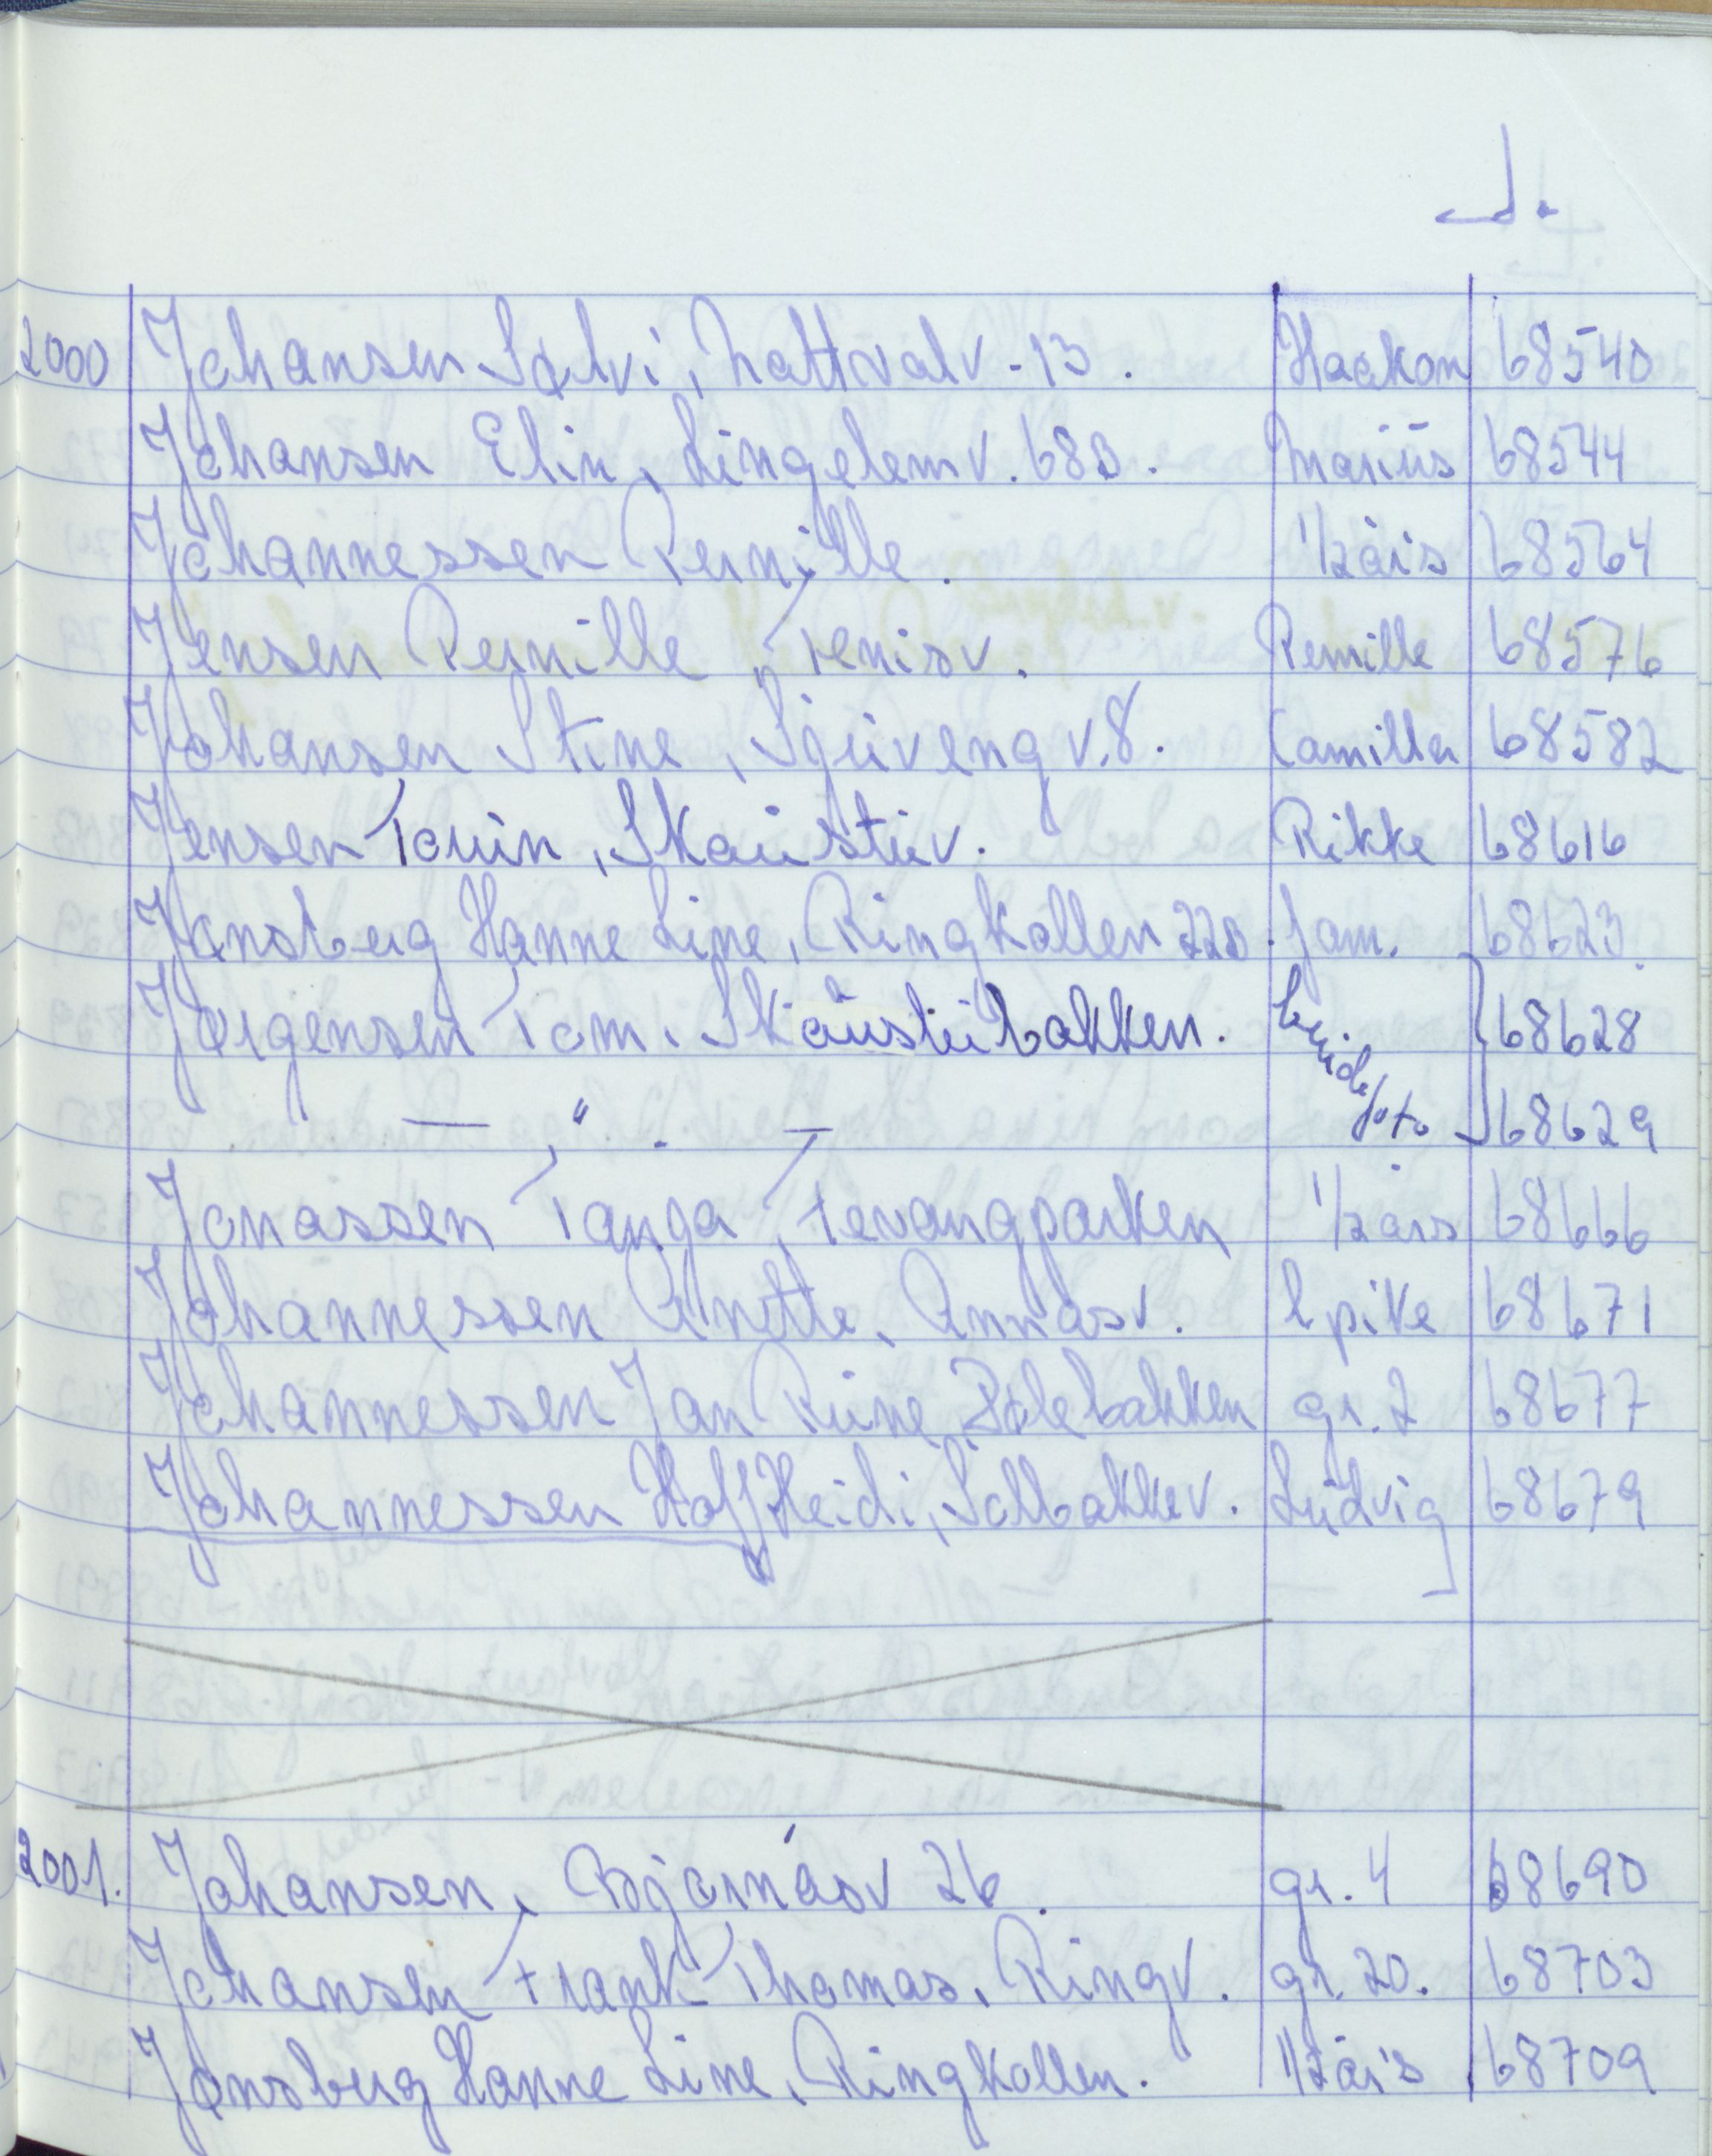 J.
2000 Johansen Sølvi, Nattvalv-13. Haakon 68540
Johansen Elin, Lingelemv. 683. Marius 68544
Johannessen Pernille. 1/2års 68564
Jensen Pernille, Frenisv. Pernille 68576
Johansen Stine, Sjuveng v. 8. Camilla 68582
Jensen Torun, Skaustuv. Rikke 68616
Jønsberg Hanne Line, Ringkollen 223. fam. 68623
Jørgensen Tom, Skaustubakken. brudefoto 68628
— " — 68629
Jonassen Tanja, Tevangparken 1/2års 68666
Johannessen Anette, Annasv. l pike 68671
Johannessen Jan Rune, Dølebakken gr. 2 68677
Johannessen Hoff Heidi, Solbakkev. Ludvig 68679
2001. Johansen, Bjørnåsv 26. gr. 4 68690
Johansen Frank-Thomas, Ringv. gr. 20. 68703
Jønsberg Hanne Line, Ringkollen. 1/2års 68709